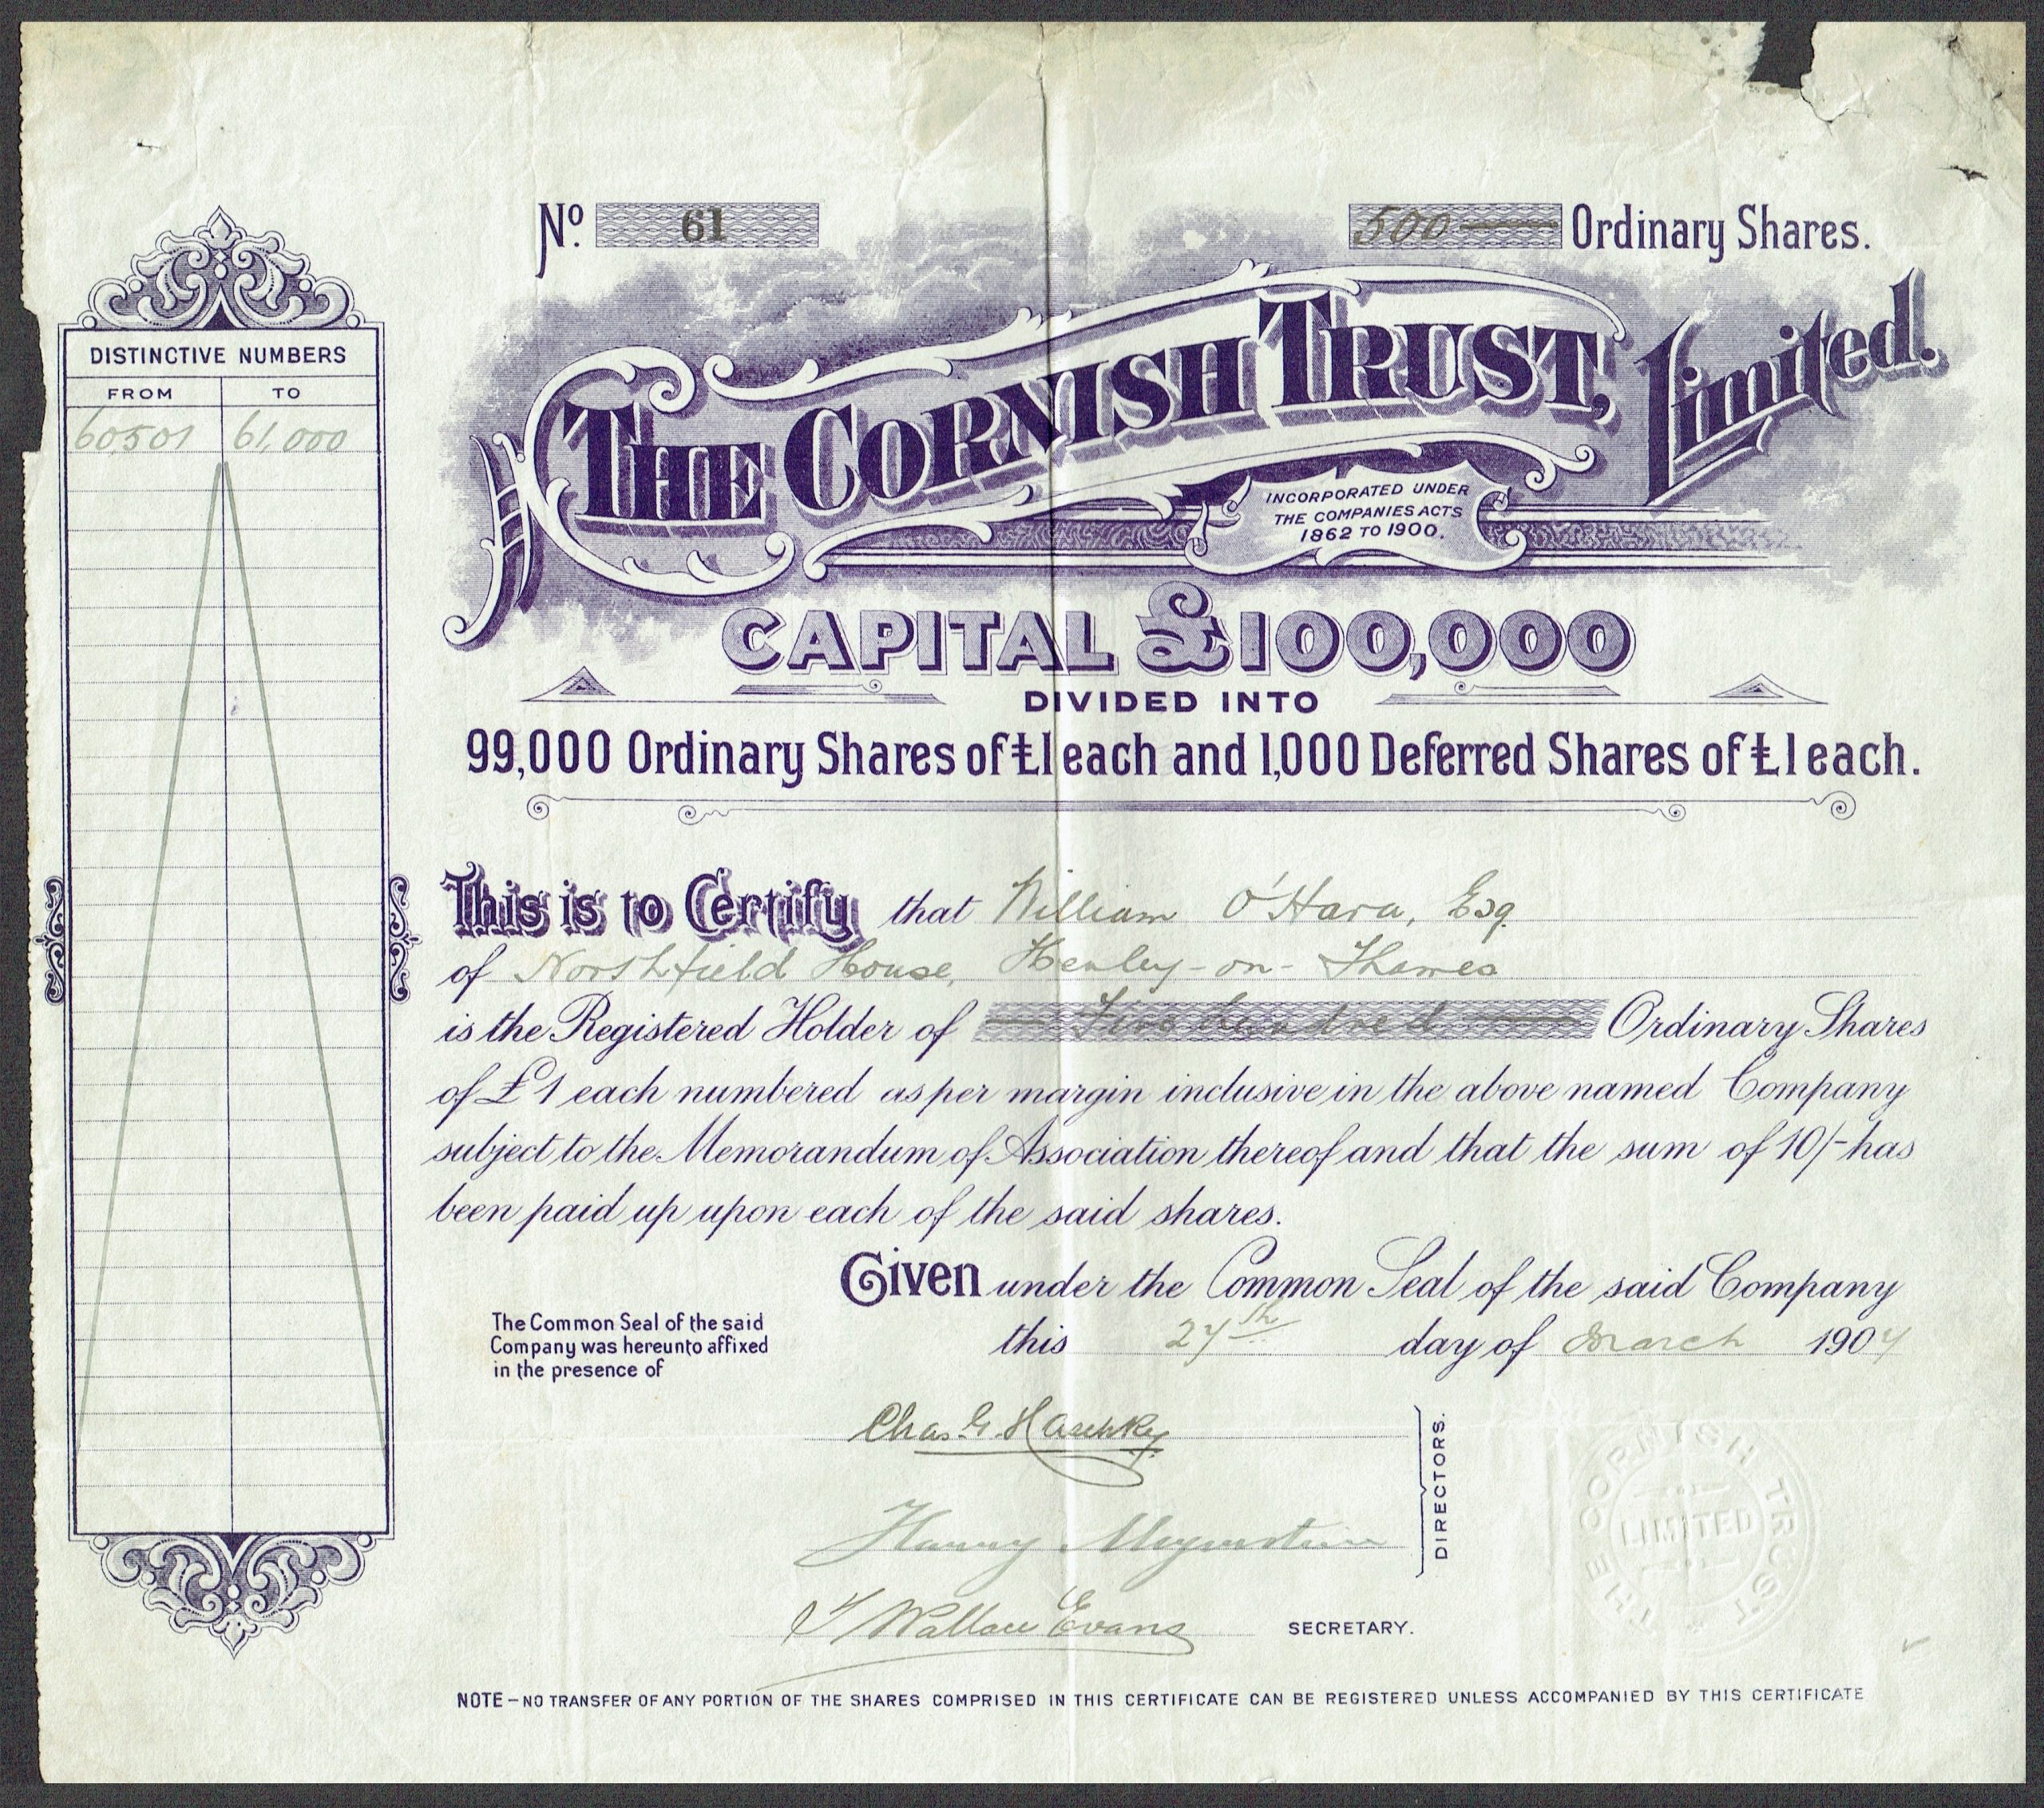 No. 61
500 Ordinary Shares.
DISTINCTIVE NUMBERS
FROM TO
60501 61,000
THE CORNISH TRUST, Limited.
INCORPORATED UNDER
THE COMPANIES ACTS
1862 TO 1900.
CAPITAL £100,000
DIVIDED INTO
99,000 Ordinary Shares of £1 each and 1,000 Deferred Shares of £1 each.
This is to Certify that William O'Hara, Esq.
of Northfield House, Henley-on-Thames
is the Registered Holder of Five hundred Ordinary Shares
of £1 each numbered as per margin inclusive in the above named Company
subject to the Memorandum of Association thereof and that the sum of 10/- has
been paid up upon each of the said shares.
Given under the Common Seal of the said Company
this 27th day of March 190
The Common Seal of the said
Company was hereunto affixed
in the presence of
Chas. G.
Harry
DIRECTORS.
Wallace Evans SECRETARY.
THE CORNISH TRUST
LIMITED
NOTE – NO TRANSFER OF ANY PORTION OF THE SHARES COMPRISED IN THIS CERTIFICATE CAN BE REGISTERED UNLESS ACCOMPANIED BY THIS CERTIFICATE